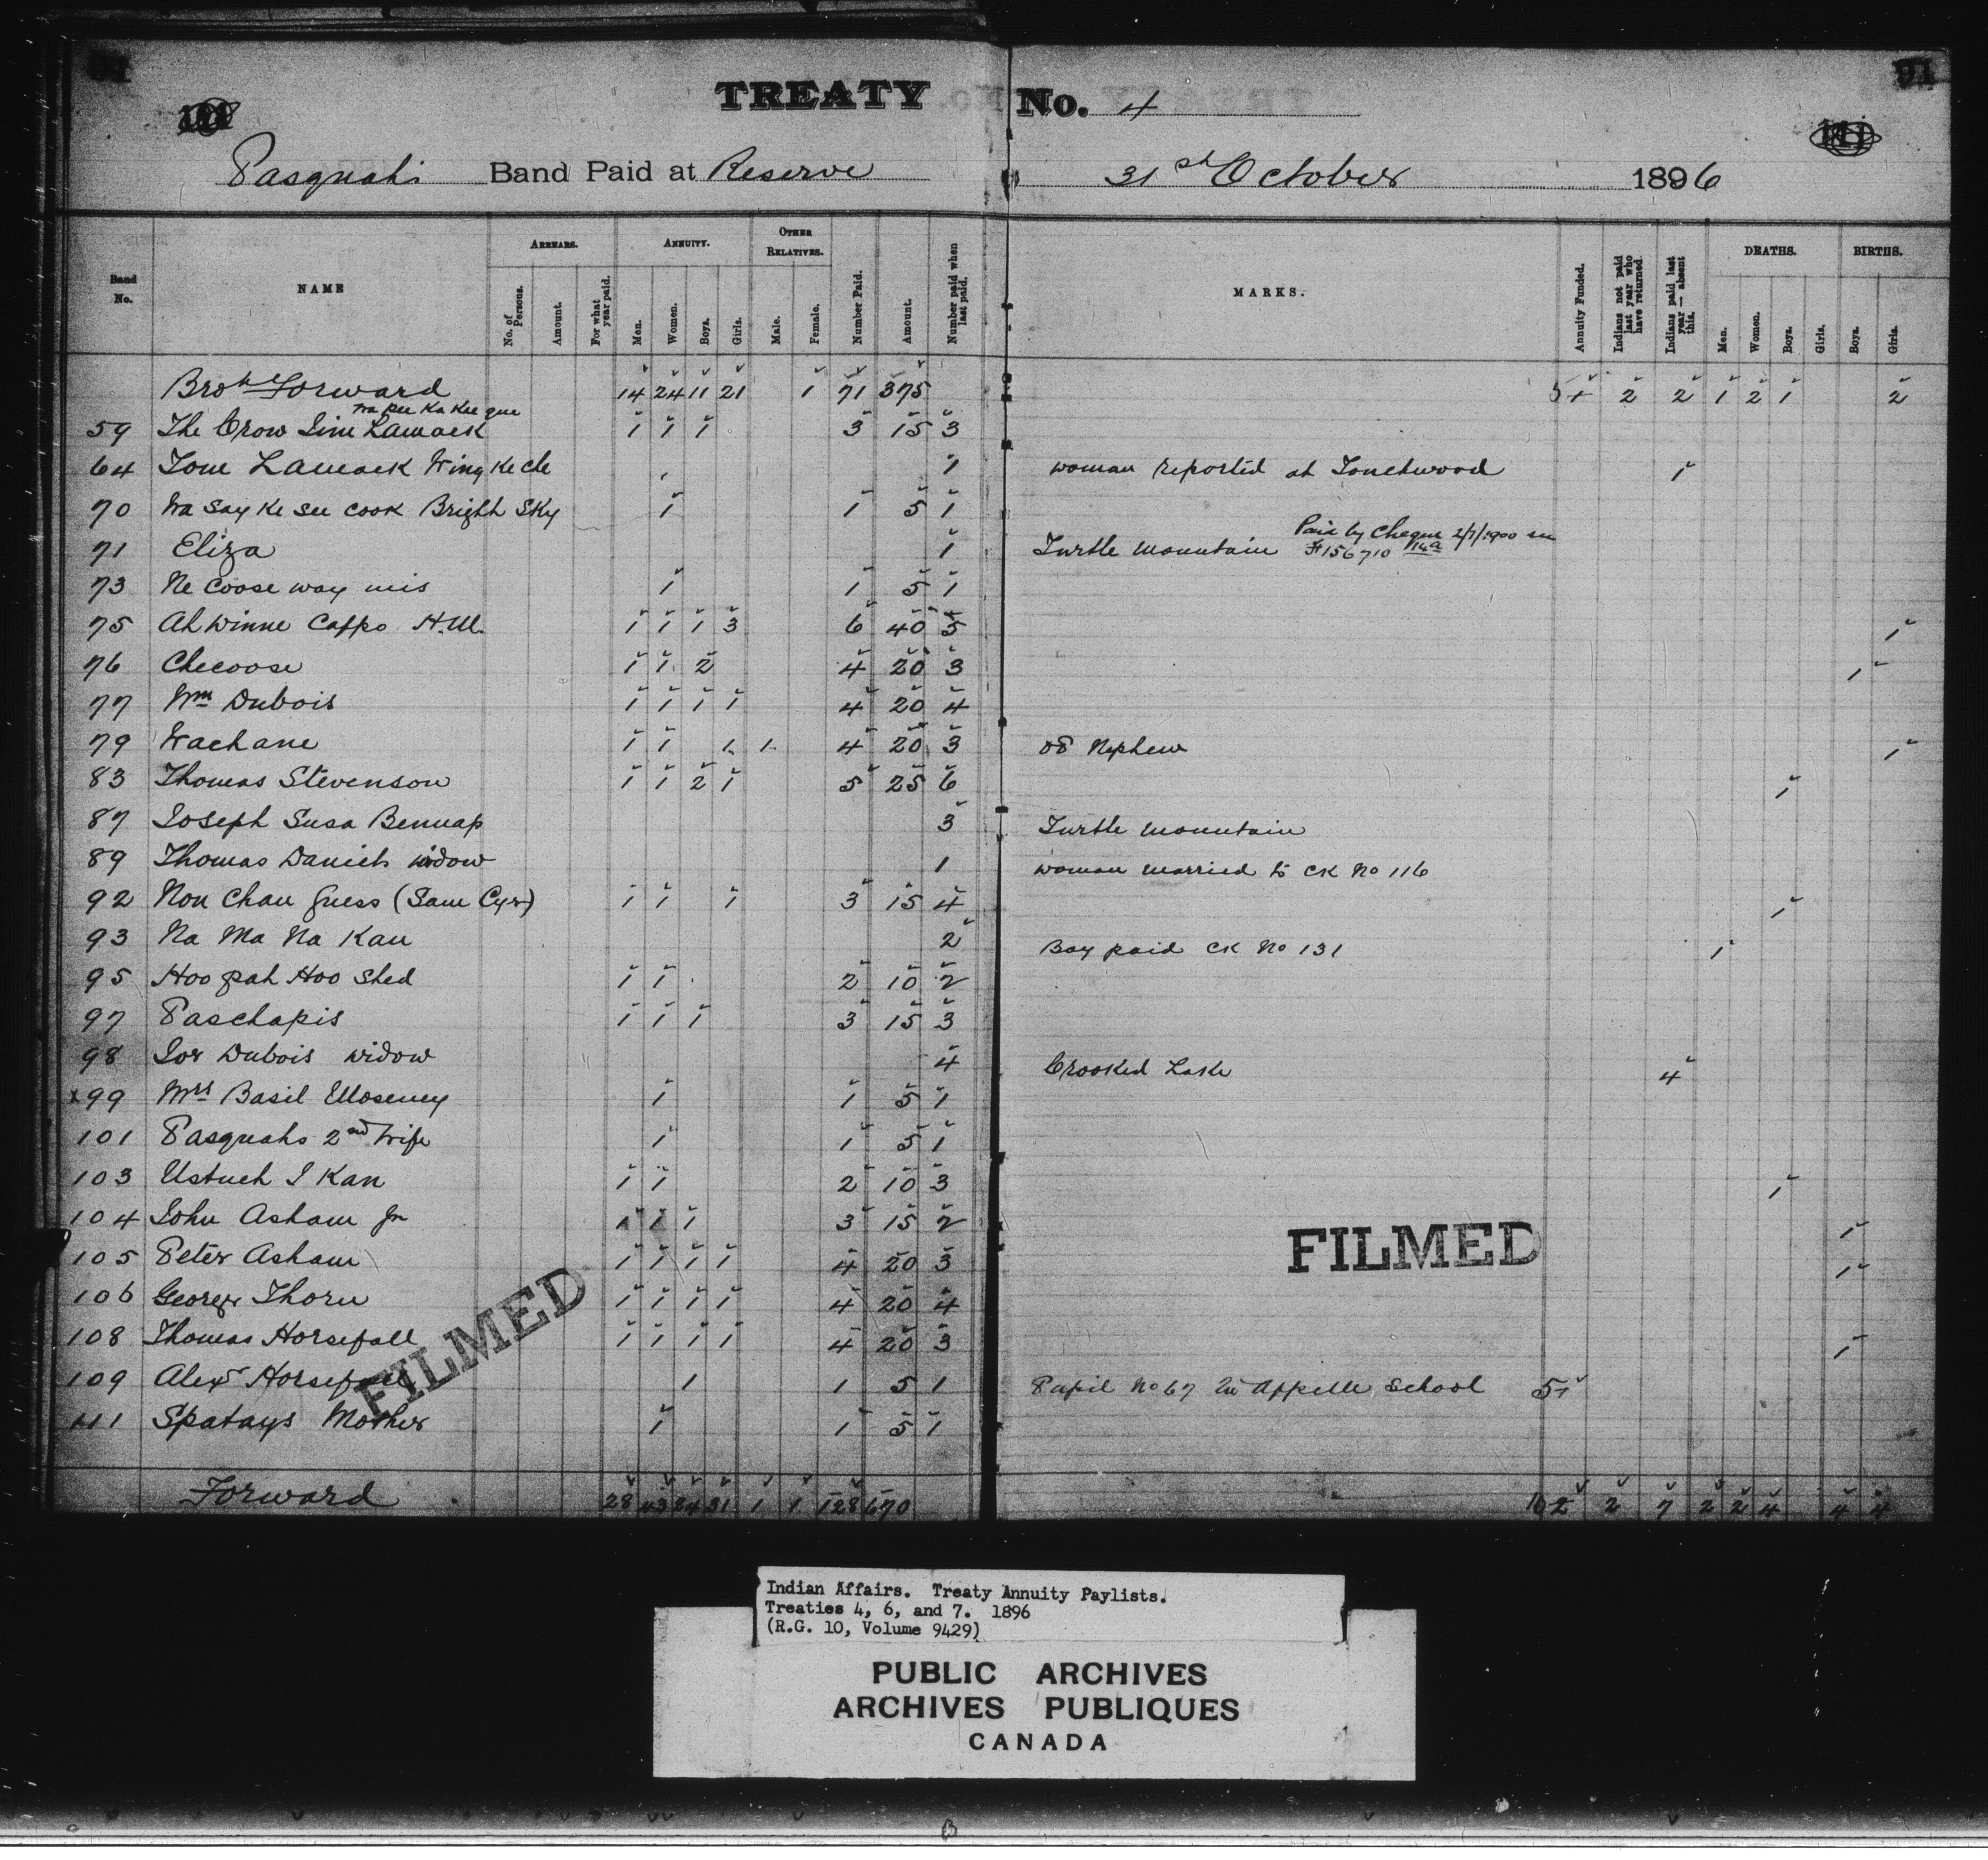 91
TREATY No. 4
91
Pasquahs Band Paid at Reserve 31st October 1896
Band No. NAME ARREARS. No. of Persons. Amount. For what year paid. ANNUITY. Men. Women. Boys. Girls. OTHER RELATIVES. Male. Female. Number Paid. Amount. Number paid when last paid. MARKS. Annuity Funded. Indians not paid last year who have returned. Indians paid last year — absent this. DEATHS. Men. Women. Boys. Girls. BIRTHS. Boys. Girls.
Brot Forward 14 24 11 21 1 71 375 2 2 1 2 1 2
Wa pee Ka Kee que
59 The Crow Jim Lamack 1 1 1 3 15 3
64 Tom Lamack Wing Ke che 1 woman reported at Touchwood 1
70 Wa say Ke see cook Bright Sky 1 1 5 1
71 Eliza 1 Turtle Mountain Paid by Cheque 2/7/1900
#156710
73 Ne coose way mis 1 1 5 1
75 Ah Winne Cappo H.M. 1 1 1 3 6 40 5 1
76 Checoose 1 1 2 4 20 3 1
77 Wm Dubois 1 1 1 1 4 20 4
79 Wachane 1 1 1 1 4 20 3 Nephew 1
83 Thomas Stevenson 1 1 2 1 5 25 6 1
87 Joseph Susa Bennap 3 Turtle Mountain
89 Thomas Daniels widow 1 woman married to CK No 116
92 Non Chan Guess (Sam Cyr) 1 1 1 3 15 4 1
93 Na Ma Na Kau 2 Boy paid CK No 131 1
95 Hoo pah Hoo Shed 1 1 2 10 2
97 Paschapis 1 1 1 3 15 3
98 Jos Dubois widow 4 Crooked Lake 4
x99 Mrs Basil Moseney 1 1 5 1
101 Pasquahs 2nd Wife 1 1 5 1
103 Ustuch I Kan 1 1 2 10 3 1
104 John Asham Jr 1 1 1 3 15 2 1
105 Peter Asham 1 1 1 1 4 20 3 1
106 George Thorn 1 1 1 1 4 20 4
108 Thomas Horsefall 1 1 1 1 4 20 3 1
109 Alex Horsefall 1 1 5 1 Pupil No 67 Qu'Appelle School 5
111 Spatays Mother 1 1 5 1
FILMED
FILMED
Forward 28 43 24 31 1 1 128 670 10 2 7 2 2 4 4 4
Indian Affairs. Treaty Annuity Paylists.
Treaties 4, 6, and 7. 1896
(R.G. 10, Volume 9429)
PUBLIC ARCHIVES
ARCHIVES PUBLIQUES
CANADA